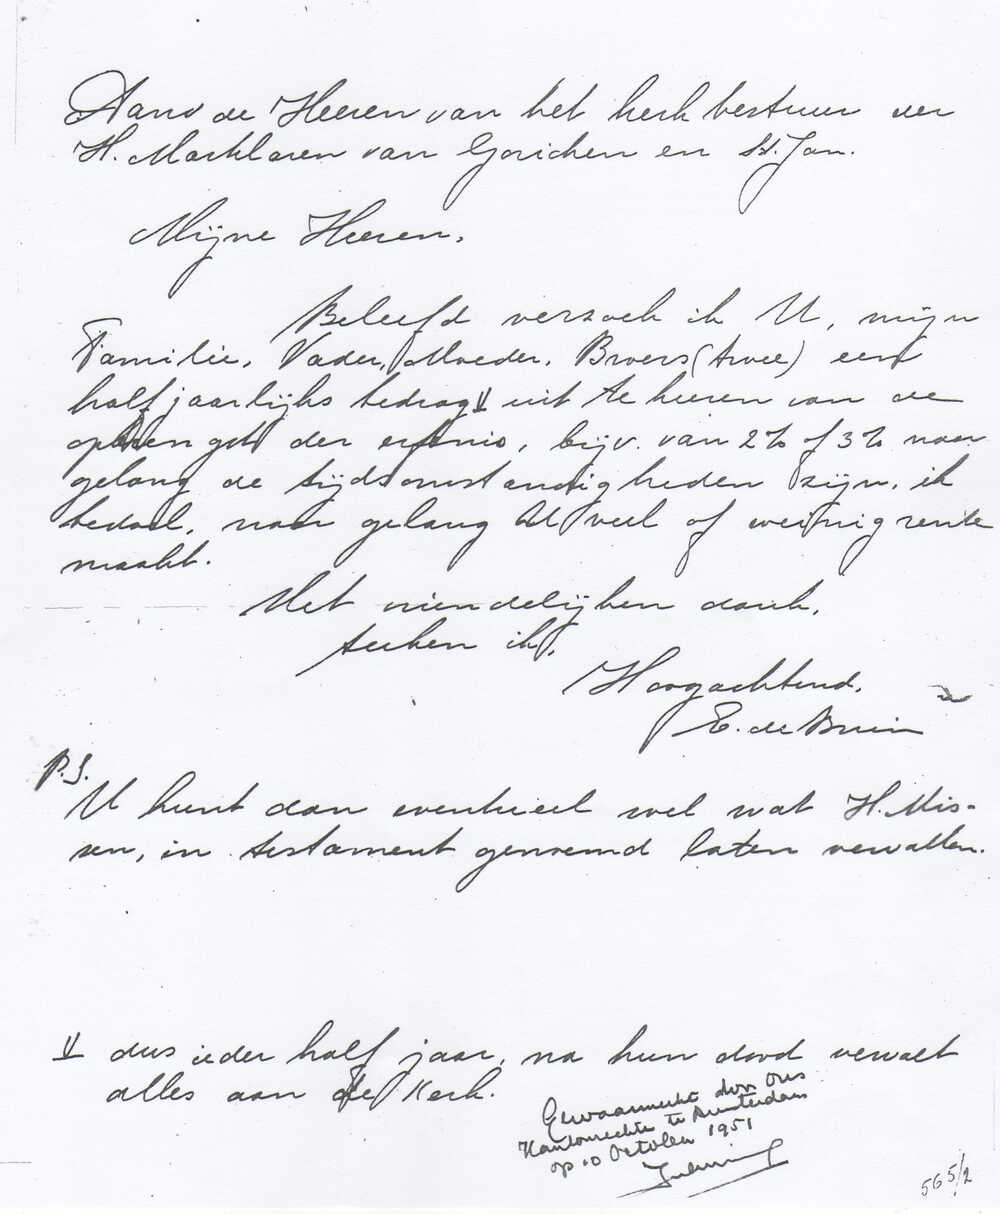 Aan de Heeren van het kerkbestuur der
H. Martelaren van Gorichem en St. Jan.
Mijne Heeren,
Beleefd verzoek ik U, mijn
Familie, Vader, Moeder, Broers (twee) een
halfjaarlijks bedrag V uit te keeren van de
opbrengst der erfenis, bijv. van 2% of 3% naar
gelang de tijdsomstandigheden zijn, ik
bedoel, naar gelang U veel of weinig rente
maakt.
Met vriendelijken dank,
teeken ik,
Hoogachtend,
E. de Bruin
P.S.
U kunt dan eventueel wel wat H. Mis-
sen, in testament genoemd laten vervallen.
V dus ieder half jaar, na hun dood vervalt
alles aan de Kerk.
Gewaarmerkt door ons
Kantonrechter te Amsterdam
op 10 October 1951
565/2